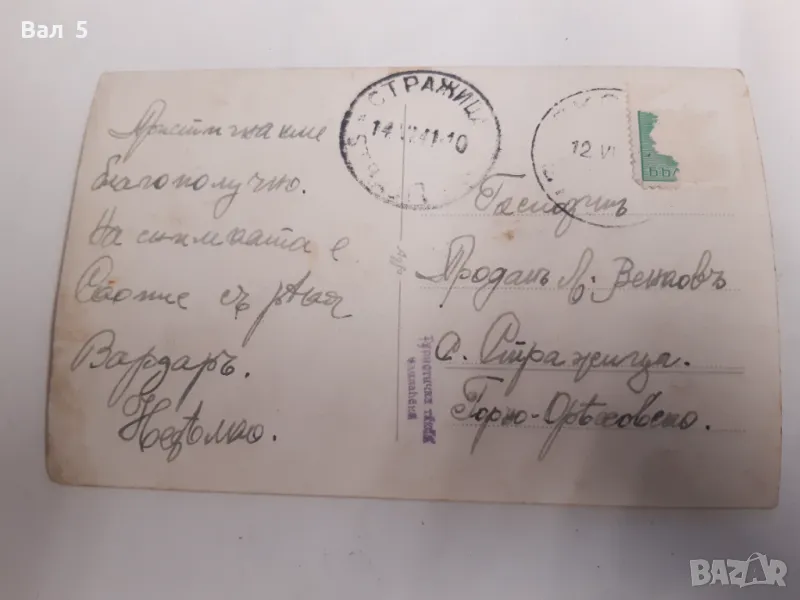 Вал 5
Пристигнахме
благополучно.
На снимката е
Скопие съ рѣка
Вардаръ.
Недѣлко.
СТРАЖИЦА
14.VI.41-10
12 VI
Господинъ
Проданъ Венковъ
с. Стражица.
Горно-Орѣховско.
BAZAR